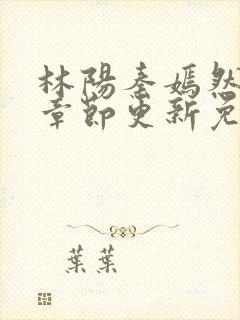 林陽秦嫣然
章節更新免
葉葉